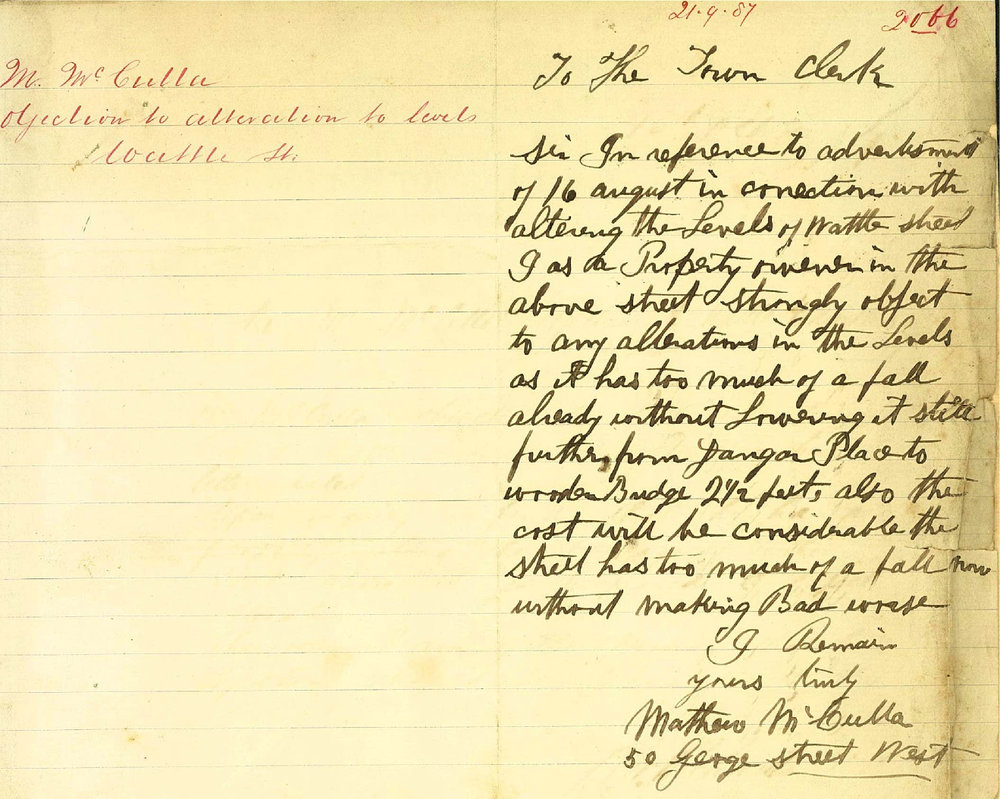 21.9.87
2066
M. McCulla
Objection to alteration to levels
Wattle St.
To The Town Clerk
Sir In reference to advertisment
of 16 august in conection with
altering the Levels of Wattle street
I as a Property owener in the
above street strongly object
to any alterations in the Levels
as it has too much of a fall
already without Lowering it still
further, from Dangar Place to
wooden Bridge 2 1/2 feet, also the
cost will be considerable the
street has too much of a fall now
without making Bad worse
I Remain
yours truly
Mathew McCulla
50 George street West